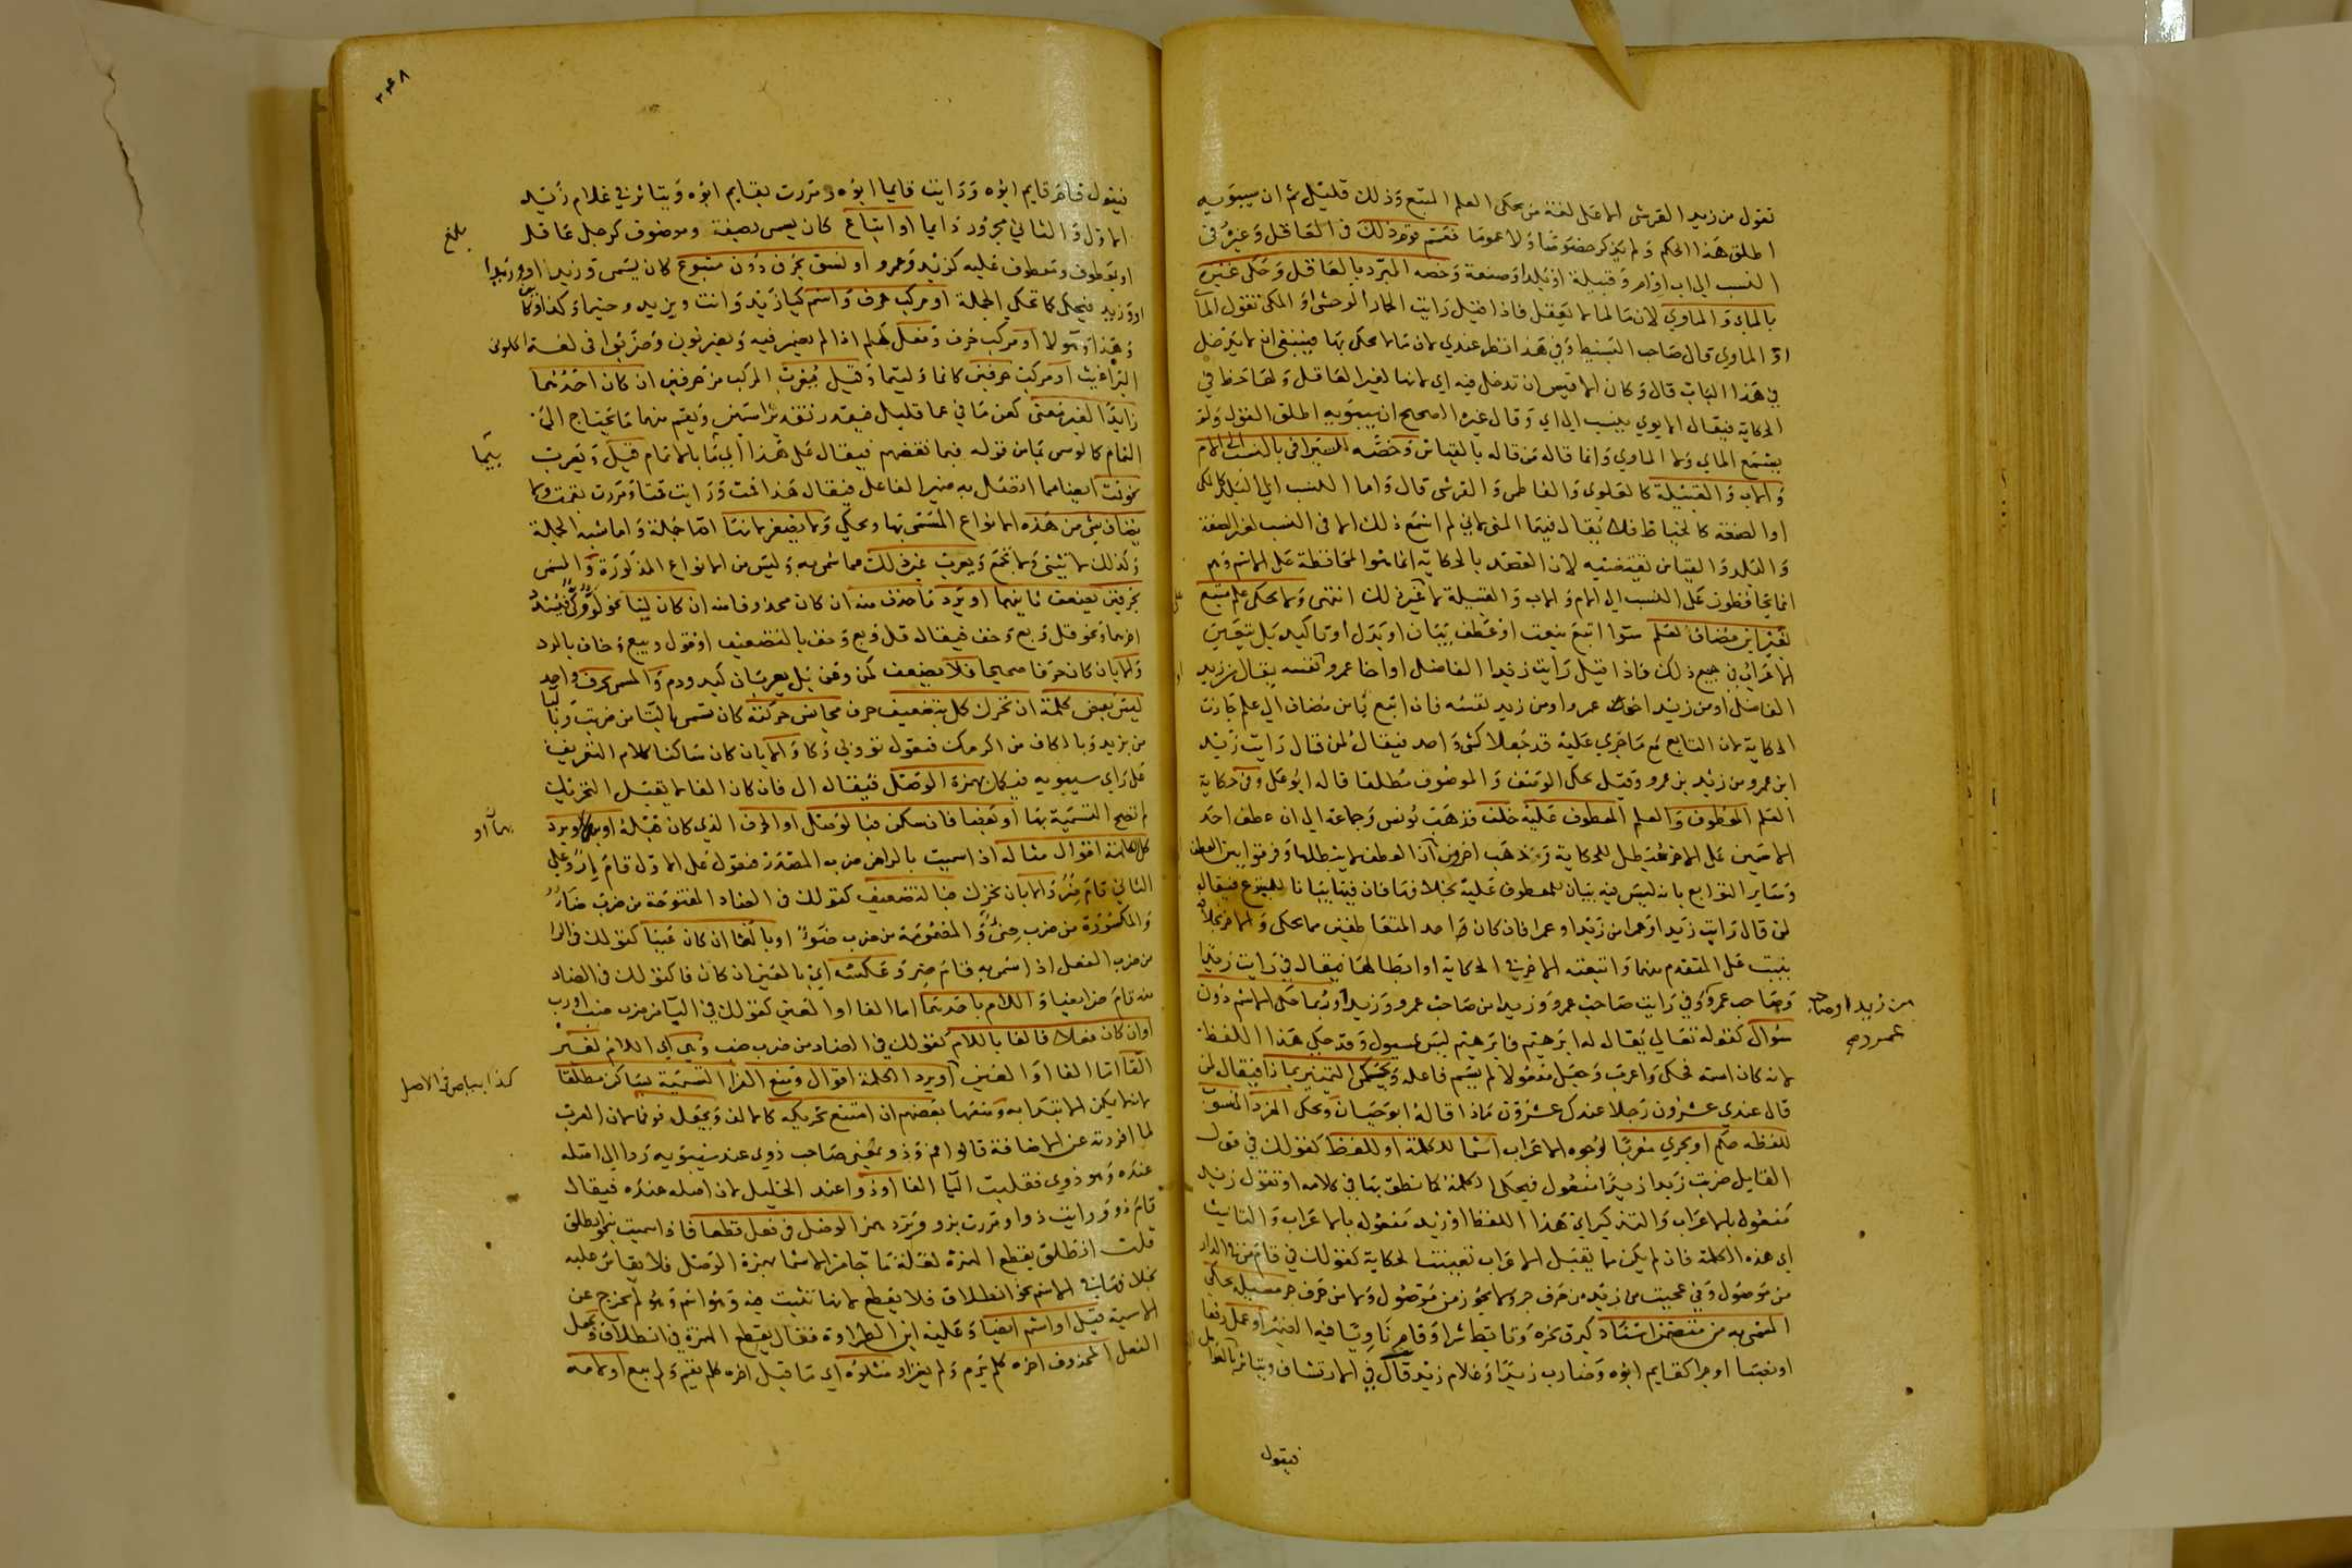 تقول من زيد القرشي الا على لغة من يحكى العلم المتبع وذلك قليل ثم ان سيبويه
اطلق هذا الحكم ولم يذكر خصوصا ولا عموما فعمم قوم ذلك في العاقل وغيره في
النسب الى اب او ام وقبيلة او بلد او صنعة وخصه المبرد بالعاقل وحكى غيره
بالماى والماوي لان ما لما لا يعقل فاذا قيل رايت الحمار الوحشي او المكي تقول الماى
او الماوي قال صاحب البسيط وفي هذا نظر عندي لان ما لا يحكى بها فينبغي ان لا يدخل
في هذا الباب قال وكان الاقيس ان تدخل فيه اي لانها لغير العاقل ولها حظ في
الحكاية فيقال الايوي بنسب الى اي وقال غيره الصحيح ان سيبويه اطلق القول ولم
يسمع الماي ولا الماوي وانما قاله من قاله بالقياس وخصه السيرافي بالنسب الى الام
والاب والقبيلة كالعلوي والفاطمي والقرشي قال واما النسب الى البلد كالمكى
او الصنعة كالخياط فلا يقال فيها المنى لاني لم اسمع ذلك الا في النسب لغير الصنعة
والبلد والقياس يقتضيه لان القصد بالحكاية انما هو المحافظة على الاسم وهم
انما يحافظون على النسب الى الام والاب والقبيلة لا غير ذلك انتهى ولا يحكى علم متبع
بغير ابن مضاف لعلم سوا اتبع بنعت او عطف بيان او بدل او تاكيد بل يتعين
الاعراب في جميع ذلك فاذا قيل رايت زيدا الفاضل او اخا عمرو او نفسه يقال من زيد
الفاضل او من زيد اخو عمرو او من زيد نفسه فان اتبع بابن مضاف الى علم جازت
الحكاية لان التابع مع ما جرى عليه قد جعلا كشى واحد فيقال لمن قال رايت زيد
ابن عمرو من زيد بن عمرو وقيل يحكى الوصف والموصوف مطلقا قاله ابو على وفي حكاية
العلم المعطوف والعلم المعطوف عليه خلف فذهب يونس وجماعة الى ان عطف احد
الاسمين على الاخر مبطل للحكاية وذهب اخرون ان العطف لا يبطلها وفرقوا بين العطف
وسائر التوابع بانه ليس فيه بيان للمعطوف عليه بخلافها فان فيها بيانا للمتبوع فيقال
لمن قال رايت زيدا وعمرا من زيدا وعمرا فان كان واحد المتعاطفين مما يحكى والاخر بخلافه
بنيت على المتقدم منهما واتبعته الاخر في الحكاية او ابطالها فيقال في رايت زيدا
وصاحب عمرو وفي رايت صاحب عمرو وزيدا من صاحب عمرو وزيد وربما حكى الاسم دون
من زيدا وصاحب
عمرو صح
سؤال كقوله تعالى يقال له ابرهيم فابرهيم ليس بمسول وقد حكى هذا اللفظ
لانه كان اسمه فحكى واعرب وجعل مفعولا لم يسم فاعله ويحكى التمييز بماذا فيقال لمن
قال عندي عشرون رجلا عندك عشرون ماذا قاله ابو حيان ويحكى المفرد المنسوب
للفظه حكم او يجري معربا لوجوه الاعراب اسما للكلمة او للفظ كقولك في قول
القايل ضربت زيدا زيدا مفعول فيحكى الكلمة كما نطق بها في كلامه او تقول زيد
مفعول بالاعراب والتذكير اي هذا اللفظ او زيد مفعوله بالاعراب والتانيث
اي هذه الكلمة فان لم يكن ما يقبل الاعراب تعينت الحكاية كقولك في قام من في الدار
من موصول وفي عجبت من زيد من حرف جر ولا يجوز من موصول ولا من حرف جر
المسمى به من متضمن اسناد كبرق نحره وتابط شرا وقام زيد وما فيه الضمير او عمل رفعا
او نصبا او جرا كقايم ابوه وضارب زيدا وغلام زيد قال في الارتشاف ويتاثر بالعوامل
فيقول
٣٤٨
فيقول قام قايم ابوه ورايت قايما ابوه ومررت بقايم ابوه ويتاثر في غلام زيد
الاول والثاني مجرور دايما او اتباع كان يسمى بصفة وموصوف كرجل عاقل
بلغ
او بعطوف ومعطوف عليه كزيد وعمرو او نسق بحرف دون متبوع كان يسمى وزيد او وزيدا
او وزيد فيحكى كما تحكى الجملة او مركب حرف واسم كيا زيد وانت ويزيد وحيثما وكذا
وهذا وهولا او مركب حرف وفعل كهلم اذا لم يضمر فيه وبغير نون وضربوا في لغة اكلوني
البراغيث او مركب حرفين كانما وليتما وقيل يعرب المركب من حرفين ان كان احدهما
زايدا لغير معنى كعن ما في عما قليل
التمام كالوس ثبا من قوله فبما نقضهم فيقال على هذا اي بما بالاتمام قيل ويعرب
بيما
نحو قمت ايضا مما اتصل به ضمير الفاعل فيقال هذا قمت ورايت قمتا ومررت بقمت ولا
يضاف شى من هذه الانواع المسمى بها ويحكى ولا يصغر لانها اما جملة واما شبه الجملة
وكذلك لا يثنى ولا يجمع ويعرب غير ذلك مما سمى به وليس من الانواع المذكورة والمسمى
بحرفين يضعف ثانيهما او يرد ما حذف منه ان كان محذوفا منه ان كان لينا نحو لو وكي فيشدد
اخرهما ونحو قل وبع وخف فيقال قل وبع وخف بالتضعيف او قول وبيع وخاف بالرد
والا بان كان حرفا صحيحا فلا يضعف كمن وعن بل يعربان كيد ودم والمسمى بحرف واحد
ليس بعض كلمة ان تحرك كمل بتضعيف حرف مجانس حركته كان تسمى بالتا من ضربت وبا
من يزيد وبالكاف من اكرمك فتقول تو وبي وكا والا بان كان ساكنا كلام التعريف
على راى سيبويه فيكمل بهمزة الوصل فيقال ال فان كان الفا لا يقبل التحريك
لم تصح التسمية بها او بعضا فان سكن فبا لوصل او الحرف الذي كان قبله او يرد
بها او
كل الكلمة اقوال مثاله اذا سميت بالراء من ضرب المصدر فتقول على الاول قام
الثاني قام ضر والا بان تحرك فبالتضعيف كقولك في الضاد المفتوحة من ضرب ضاء
والمكسورة من ضرب ضي والمضمومة من ضرب ضو او بالفا ان كان عينا كقولك في الرا
من ضرب الفعل اذا سمى به قام ضر وعكسه اي بالعين ان كان فا كقولك في الضاد
منه قام ضر ايضا واللام باحدهما اما الفا او العين كقولك في البا من ضرب ضب او رب
او ان كان فعلا فالفا باللام كقولك في الضاد من ضرب ضب وهي اي اللام لغير
الفا اما الفا او العين او يرد الكلمة اقوال ومنع الفرا التسمية بساكن مطلقا
كذا ببياض في الاصل
لانه لا يمكن الابتدا به ومنعها بعضهم ان امتنع تحريكه كالالف ويجعل فو فما لان العرب
لما افردته عن الاضافة قالوا فم وذو بمعنى صاحب ذوى عند سيبويه ردا الى اصله
عنده وهو ذوي فقلبت اليا الفا او ذوا عند الخليل لان اصله عنده فيقال
قام ذو ورايت ذوا ومررت بذو ويرد همز الوصل في فعل قطعا فاذا سميت بنحو انطلق
قلت انطلق بقطع الهمزة لقلة ما جا من الاسما بهمزة الوصل فلا يقاس عليه
بخلافه في الاسم نحو انطلاق فلا يقطع لانها تثبت فيه وهو اسم ولم يخرج عن
الاسمية قيل او اسم ايضا وعليه ابن الطراوة فقال بقطع الهمزة في انطلاق ويكمل
الفعل المحذوف اخره كلم يرم ولم يغز او متلوه اي ما قبل اخره كلم يقم ولم يبع او لامه